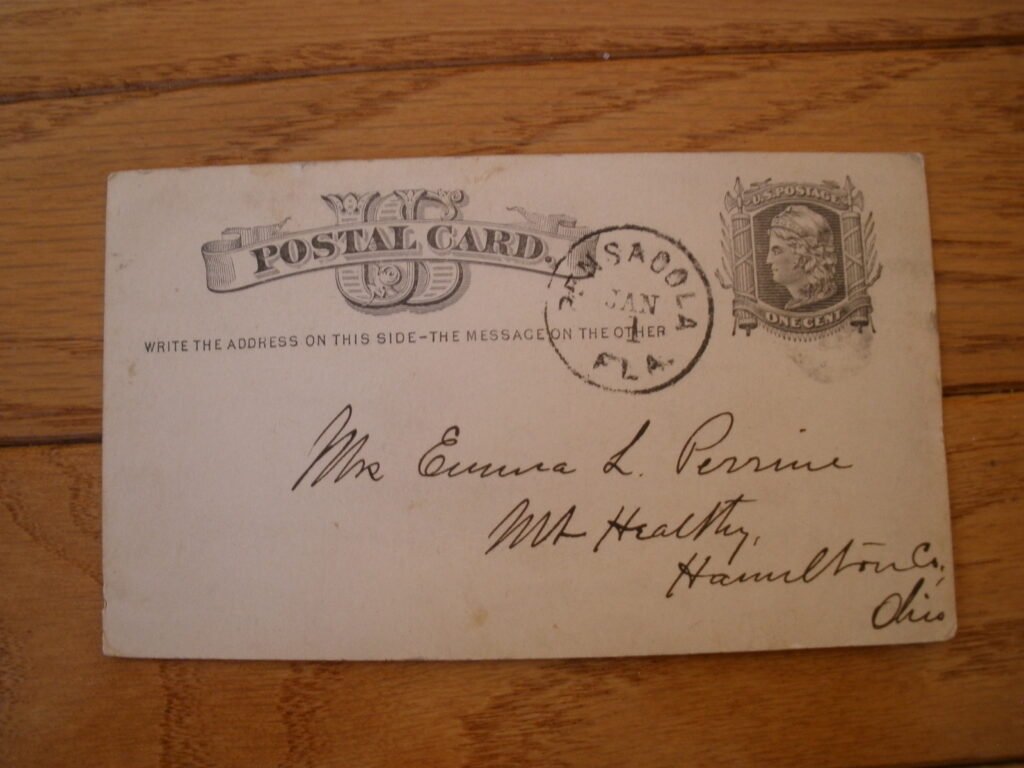 US
POSTAL CARD.
U.S. POSTAGE
ONE CENT
WRITE THE ADDRESS ON THIS SIDE-THE MESSAGE ON THE OTHER
PENSACOLA
JAN
1
FLA.
Mrs Emma L. Perrine
Mt Healthy,
Hamilton Co,
Ohio